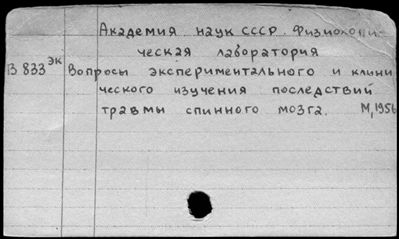 Академия наук СССР. Физиологи-
ческая лаборатория
В 833 эк Вопросы экспериментального и клини
ческого изучения последствий
травмы спинного мозга. М, 1956